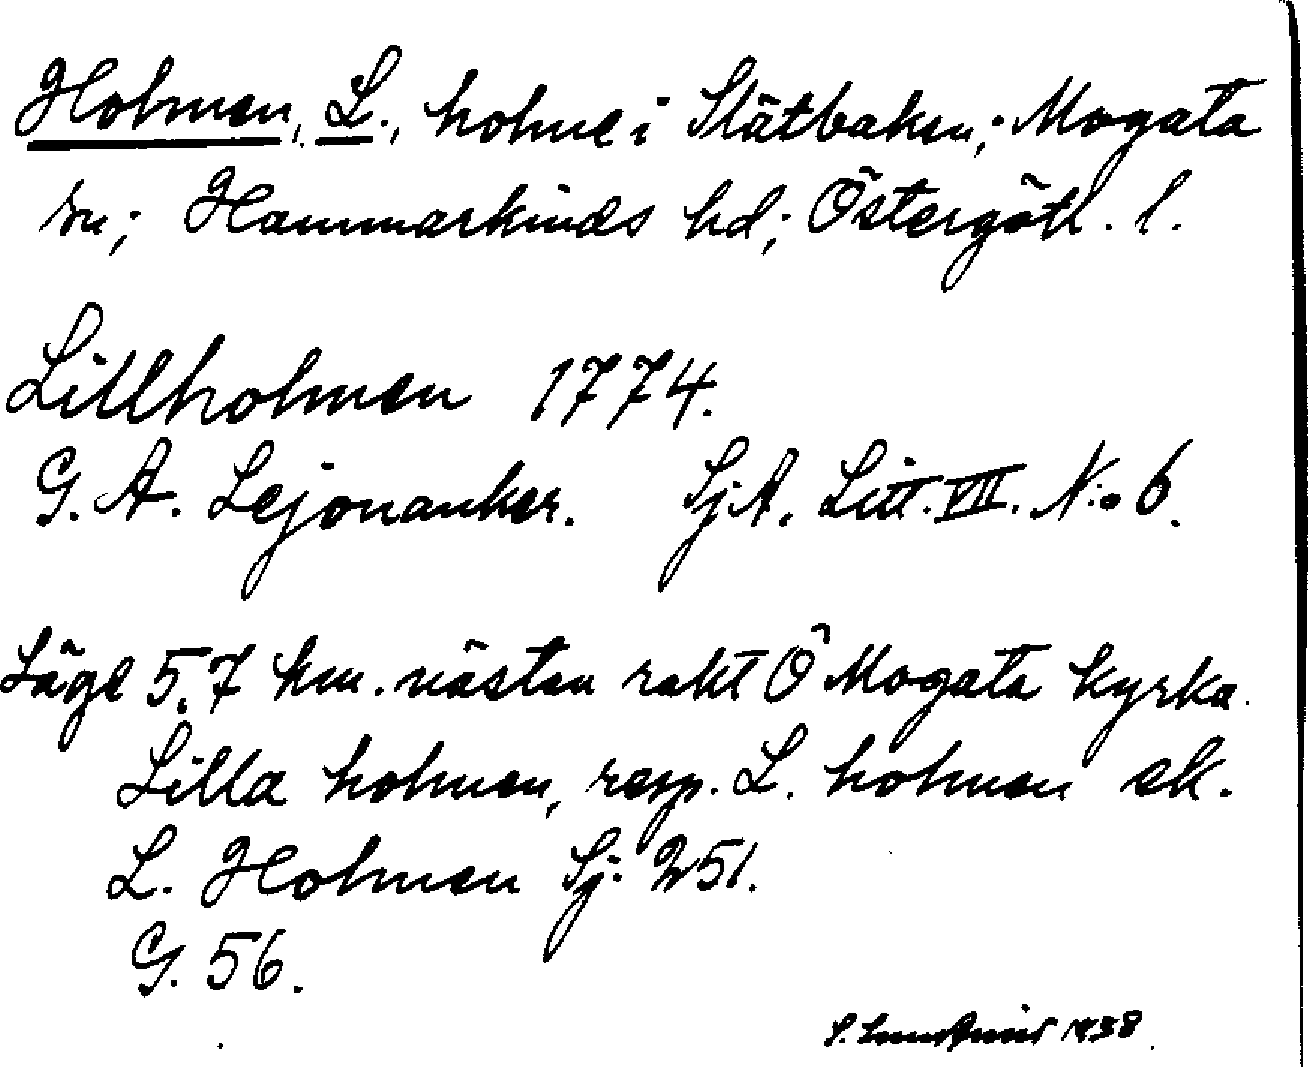 Holmen, L., holme i Slätbaken; Mogata
sn; Hammarkinds hd; Östergötl. l.
Lillholmen 1774.
G. A. Lejonanker. SjA. Litt. VII. N:o 6.
Läge 5,7 km. nästan rakt Ö Mogata kyrka.
Lilla holmen, resp. L. holmen ek.
L. Holmen Sj. 251.
G. 56.
S. Lundqvist 1938